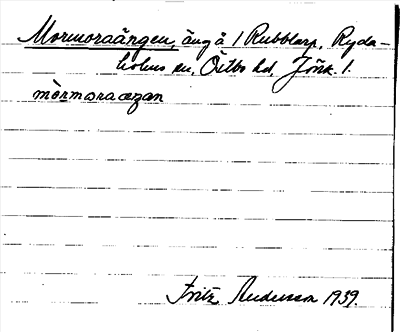 Mormoraängen, äng å 1 Rubbarp, Ryda-
holms sn, Östbo hd, Jönk. l.
mòrmoraæŋan
Fritz Andersson 1939.